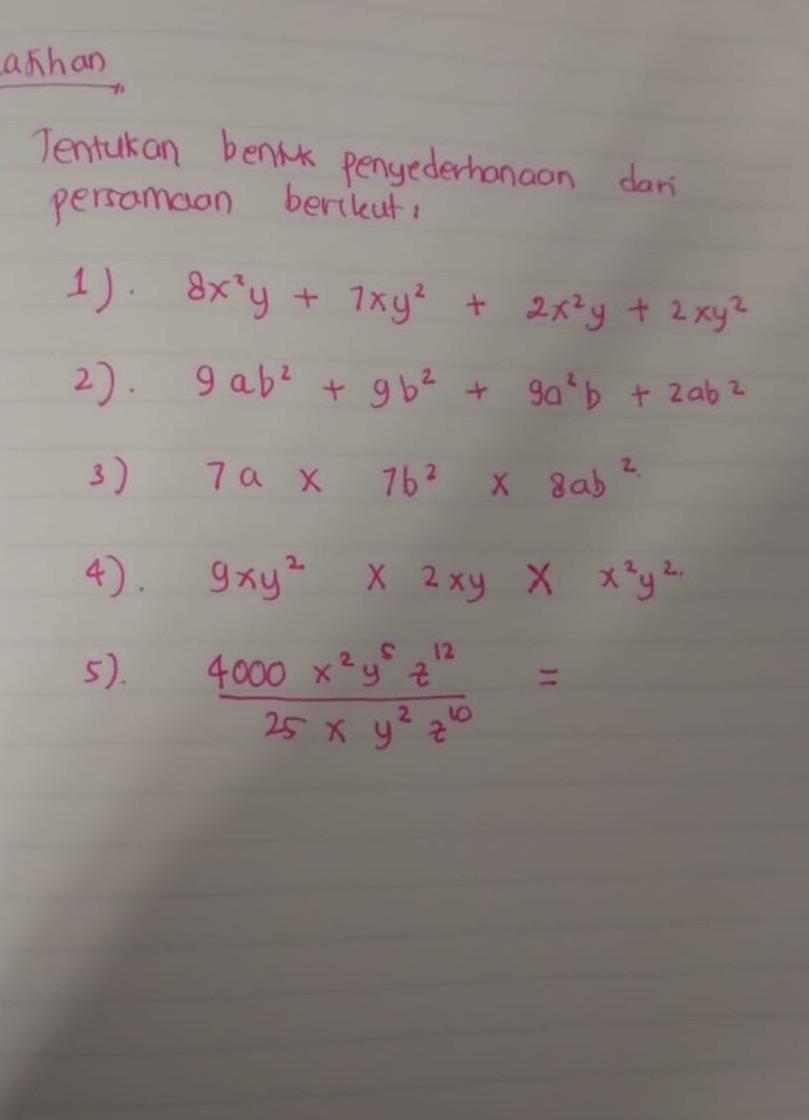 Tentukan bentuk penyederhanaan dari
persamaan berikut:
1). 8x²y + 7xy² + 2x²y + 2xy²
2). 9ab² + 9b² + 9a²b + 2ab²
3) 7a x 7b² x 8ab²
4). 9xy² x 2xy x x²y²
5). 4000 x²y⁵z¹² =
25 x y² z¹⁰